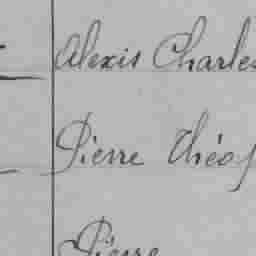 Alexis Charles
Pierre Théop
Pierre